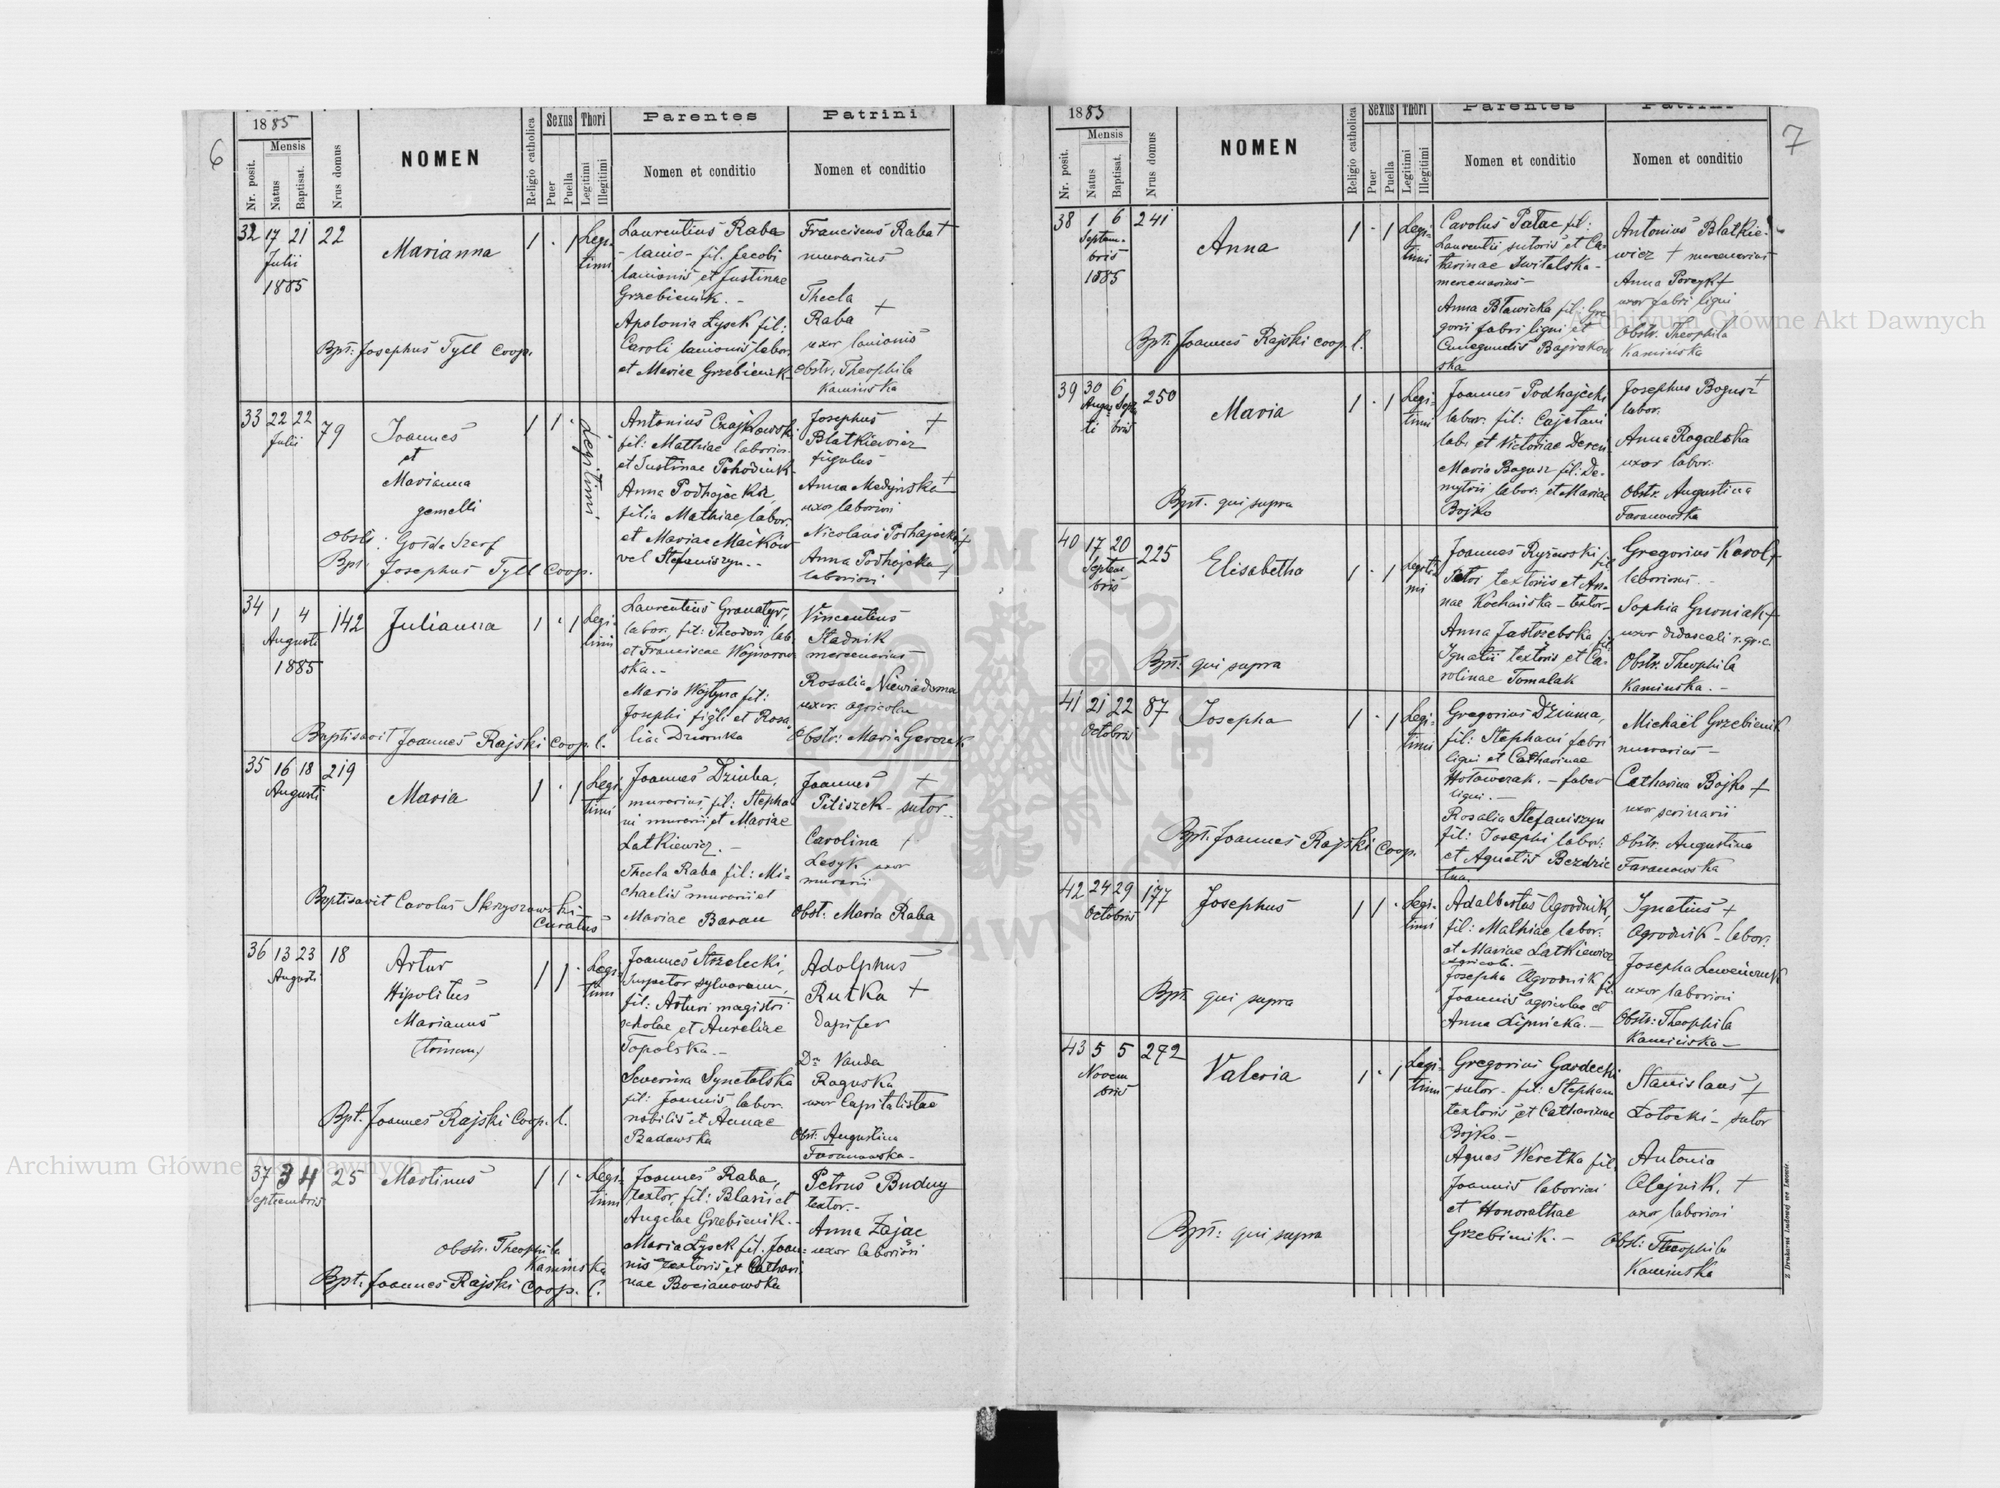 6
1885
Nr. posit.
Mensis
Natus
Baptisat.
Nrus domus
NOMEN
Religio catholica
Sexus
Puer
Puella
Thori
Legitimi
Illegitimi
Parentes
Nomen et conditio
Patrini
Nomen et conditio
32 17 21 22
Julii
1885
Marianna
1 . 1 Legi-
timi
Laurentius Raba
- lanio - fil. Jacobi
lanionis et Justinae
Grzebienik. -
Apolonia Łysek fil:
Caroli lanionis labor.
et Mariae Grzebienik -
Franciscus Raba +
murarius
Thecla +
Raba
uxor lanionis
Obstr. Theophila
Kamińska
Bpt: Josephus Tyll Coop.
33 22 22 79
Julii
Joannes
et
Marianna
gemelli
1 1 . Legitimi
Antonius Czajkowski
fil: Mathiae laborios
et Justinae Pohodiuk
Anna Podhajecka,
filia Mathiae labor.
et Mariae Maćków
vel Stefaniszyn. -
Josephus +
Blatkiewicz
figulus
Anna Medyńska +
uxor laboriosi
Nicolaus Podhajecki +
Anna Podhajecka +
laboriosi
Obstr: Gołda Szerf
Bpt: Josephus Tyll Coop.
34 1 4 142
Augusti
1885
Julianna
1 . 1 Legi-
timi
Laurentius Granatyr,
labor, fil: Theodori lab.
et Franciscae Wojnarow
ska. -
Maria Wojtyna fil:
Josephi figli et Rosa-
liae Dziornka
Vincentius
Stadnik
mercenarius
Rosalia Niewiadoma
uxor. agricolae
Obstr: Maria Gerczak
Baptisavit Joannes Rajski coop. l.
35 16 18 219
Augusti
Maria
1 . 1 Legi-
timi
Joannes Dziuba,
murarius, fil: Stepha
ni murarii et Mariae
Latkiewicz. -
Thecla Raba fil: Mi-
chaelis murarii et
Mariae Baran
Joannes +
Piliszek - sutor -
Carolina +
Lesyk uxor
murarii
Obst: Maria Raba
Baptisavit Carolus Skrzyszowski
Curatus
36 13 23 18
Augusti
Artur
Hipolitus
Marianus
(trinom.)
1 1 . Legi-
timi
Joannes Strzelecki,
Inspector sylvarum,
fil: Arturi magistri
scholae et Aureliae
Topolska. -
Severina Synetalska
fil: Joannis labor.
nobilis et Annae
Badawska
Adolphus
Rutka +
dapifer
Dna Vanda
Raguska
uxor Capitalistae
Obst: Augustina
Faranowska -
Bpt. Joannes Rajski Coop. l.
37 3 4 25
Septembris
Martinus
1 1 . Legi-
timi
Joannes Raba,
textor, fil: Blasii et
Angelae Grzebienik. -
Maria Łysek fil. Joan-
nis textoris et Cathari
nae Bocianowska
Petrus Budny
textor. -
Anna Zając
uxor laboriosi
Obstr. Theophila
Kamińska
Bpt: Joannes Rajski Coop. l.
7
1883
Nr. posit.
Mensis
Natus
Baptisat.
Nrus domus
NOMEN
Religio catholica
Sexus
Puer
Puella
Thori
Legitimi
Illegitimi
Parentes
Nomen et conditio
Patrini
Nomen et conditio
38 1 6 241
Septem-
bris
1885
Anna
1 . 1 Legi-
timi
Carolus Palac fil:
Laurentii sutoris et Ca-
tharinae Switalska -
mercenarius -
Anna Bławicka fil: Gre
gorii fabri ligni et
Cunegundis Bajrakow
ska
Antonius Blatkie-
wicz + mercenarius
Anna Porczyk +
uxor fabri ligni
Obstr. Theophila
Kamińska
Bpt. Joannes Rajski coop. l.
39 30 6 250
Augus Sept.
ti bris
Maria
1 . 1 Legi-
timi
Joannes Podhajecki
labor. fil: Cajetani
lab. et Victoriae Dereń
Maria Bogusz fil: De-
mytrii labor. et Mariae
Bojko
Josephus Bogusz +
labor.
Anna Rogalska
uxor labor.
Obstr. Augustina
Faranowska
Bpt. qui supra
40 17 20 225
Septem
bris
Elisabetha
1 . 1 Legiti
mi
Joannes Ryżewski fil
Petri textoris et An-
nae Kochańska - textor -
Anna Jastrzebska fil:
Ignatii textoris et Ca-
rolinae Tomalak
Gregorius Karol +
laboriosus. -
Sophia Gnoniak +
uxor didascali r. gr. c.
Obstr. Theophila
Kamińska. -
Bpt: qui supra
41 21 22 87
Octobris
Josepha
1 . 1 Legi-
timi
Gregorius Dziuma,
fil: Stephani fabri
ligni et Catharinae
Hoławczak. - faber
ligni. -
Rosalia Stefaniszyn
fil: Josephi labor.
et Agnetis Bezdzie
tna.
Michaël Grzebieniik
murarius -
Catharina Bojko +
uxor scrinarii
Obstr. Augustina
Faranowska
Bpt: Joannes Rajski Coop.
42 24 29 177
Octobris
Josephus
1 1 . Legi-
timi
Adalbertus Ogrodnik,
fil: Mathiae labor.
et Mariae Latkiewicz
agricola. -
Josepha Ogrodnik fil.
Joannis agricolae et
Anna Lipnicka. -
Ignatius +
Ogrodnik - labor.
Josepha Leweńczuk
uxor laboriosi
Obstr: Theophila
Kamińska -
Bpt. qui supra
43 5 5 272
Novem
bris
Valeria
1 . 1 Legi-
timi
Gregorius Gardecki
- sutor - fil: Stephani
textoris et Catharinae
Bojko. -
Agnes Weretka fil.
Joannis laboriosi
et Honorathae
Grzebienik. -
Stanislaus +
Łotocki - sutor
Antonia
Olejnik, +
uxor laboriosi
Obst: Theophila
Kamińska
Bpt: qui supra
Z Drukarni Ludowej we Lwowie.
Archiwum Główne Akt Dawnych
Archiwum Główne Akt Dawnych
ARCHIWUM GŁÓWNE AKT DAWNYCH